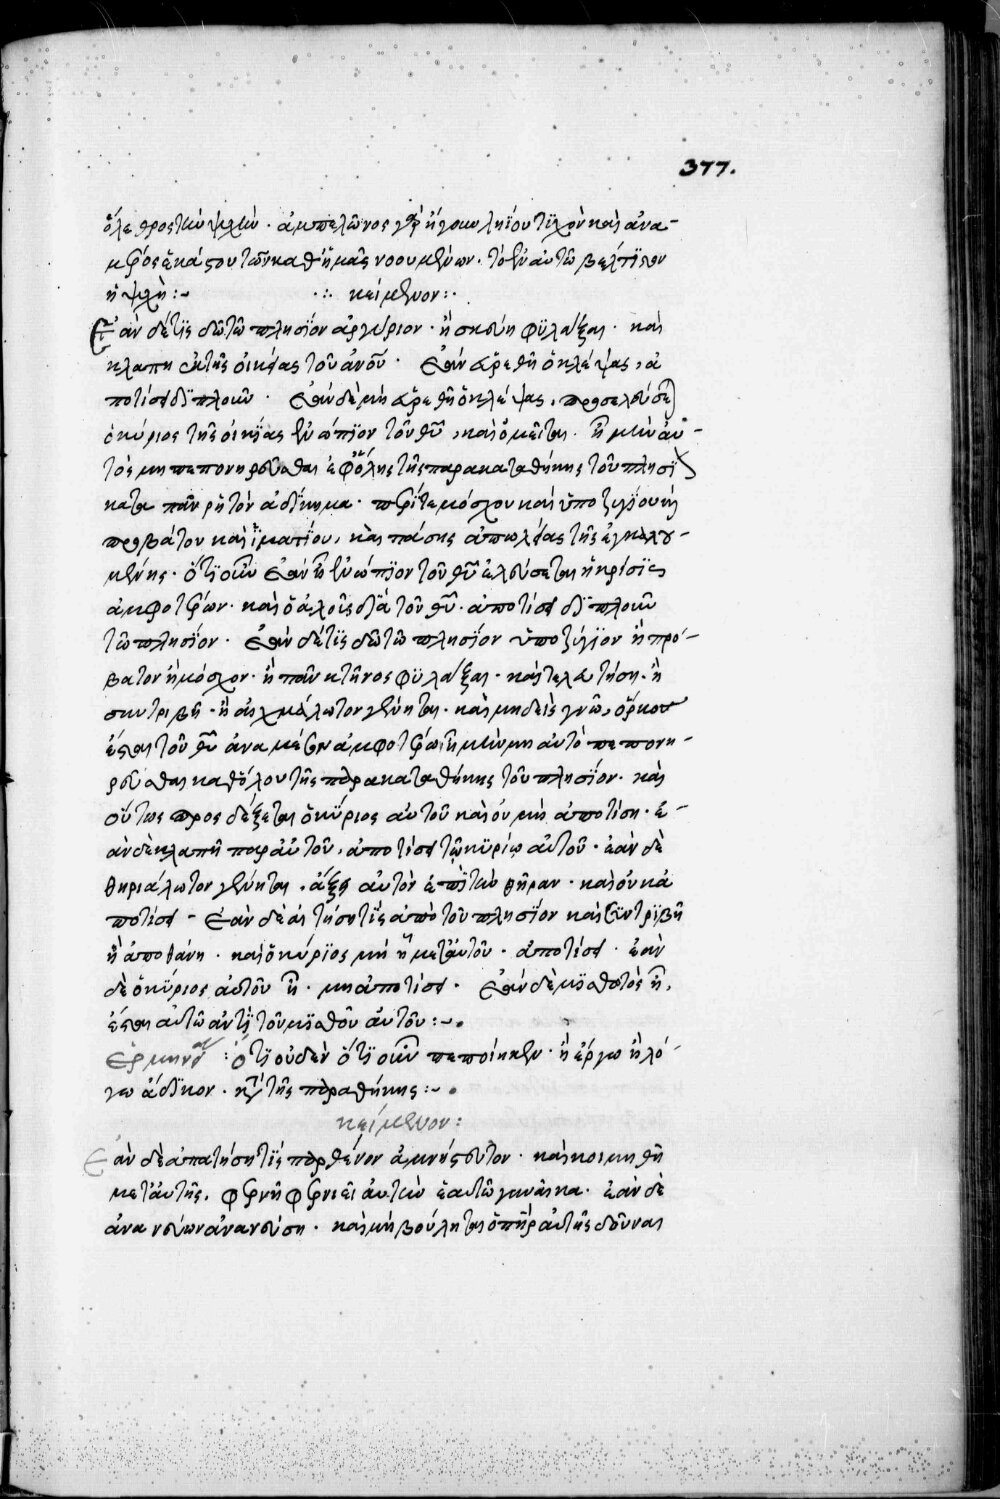 377.
ὄλεθρος τῶν ψυχῶν · ἀμπελῶνος γὰρ ἤγουν ληΐου τυχὸν καὶ ἀνα-
μέρος ἑκάστου τῶν καθ' ἡμᾶς νοουμένων · τὸ ἐν αὐτῶ βέλτϊον
ἡ ψυχὴ :~ ·:· κείμενον :·
Ἐὰν δέ τϊς δῶ τῶ πλησΐον ἀργύριον · ἢ σκεύη φϋλάξαι · καὶ
κλαπῆ ἐκ τῆς οἰκίας τοῦ ἀνου · ἐὰν εὑρεθῆ ὁ κλέψας, ἀ
ποτίσει δϊπλοῦν · ἐὰν δὲ μὴ εὑρεθῆ ὁ κλέψας, προσελεύσε
ὁ κύριος τῆς οἰκΐας ἐνώπϊον τοῦ θυ, καὶ ὀμεῖται · ἦ μὴν αὐ-
τὸς μὴ πεπονηρεῦσθαι ἐφ' ὅλης τῆς παρακαταθήκης τοῦ πλησΐ
κατα πᾶν ῥητὸν ἀδΐκημα · περΐ τε μόσχου καὶ ὑποζυγΐου καὶ
προβάτου καὶ ἱματΐου, καὶ πάσης ἀπωλείας τῆς ἐγκαλου-
μένης · ὅτϊ οὖν ἐὰν ἦ ἐνώπϊον τοῦ θυ ἐλεύσεται ἡ κρίσϊς
ἀμφοτέρων · καὶ ὁ ἁλοῦς δϊὰ τοῦ θυ · ἀποτίσει δϊπλοῦν
τῶ πλησΐον · ἐὰν δέ τϊς δῶ τῶ πλησΐον ὑποζύγϊον ἢ πρό-
βατον ἢ μόσχον · ἢ πᾶν κτῆνος φϋλάξαι · καὶ τελευτήση · ἢ
συντριβῆ · ἢ αἰχμάλωτον γένηται · καὶ μηδεὶς γνῶ, ὅρκος
ἔσται τοῦ θυ ἀναμέσον ἀμφοτέρων ἦ μὴν μὴ αὐτὸ πεπονη-
ρεῦσθαι καθόλου τῆς παρακαταθήκης τοῦ πλησΐον · καὶ
οὕτως προσδέξεται ὁ κύριος αὐτοῦ καὶ οὐ μὴ ἀποτίση · ἐ-
ὰν δὲ κλαπῆ παρ αὐτοῦ, ἀποτίσει τῶ κυρίω αὐτοῦ · ἐὰν δὲ
θηριάλωτον γένηται, ἄξει αὐτὸν ἐπὶ τὴν θήραν · καὶ οὐκ ἀ
ποτίσει - Ἐὰν δὲ αἰτήση τὶς ἀπὸ τοῦ πλησΐον καὶ συντρϊβῆ
ἢ ἀποθάνη · καὶ ὁ κύρϊος μὴ ἦ μετ' αὐτοῦ · ἀποτίσει · ἐὰν
δὲ ὁ κύριος αὐτοῦ ἦ · μὴ ἀποτίσει · ἐὰν δὲ μϊσθωτὸς ἦ,
ἔσται αὐτῶ ἀντὶ τοῦ μϊσθοῦ αὐτοῦ :~.
Ἑρμηνεία : Ὅτϊ οὐδὲν ὅτϊ οὖν πεποίηκεν · ἢ ἔργω ἢ λό-
γω ἄδϊκον · κατὰ τῆς παραθήκης :~.
κείμενον :
Ἐὰν δὲ ἀπατήση τϊς παρθένον ἀμνήστευτον · καὶ κοιμηθῆ
μετ' αὐτῆς, φερνῆ φερνιεῖ αὐτὴν ἑαυτῶ γυναῖκα · ἐὰν δὲ
ἀνανεύων ἀνανεύση · καὶ μὴ βούληται ὁ πηρ αὐτῆς δοῦναι